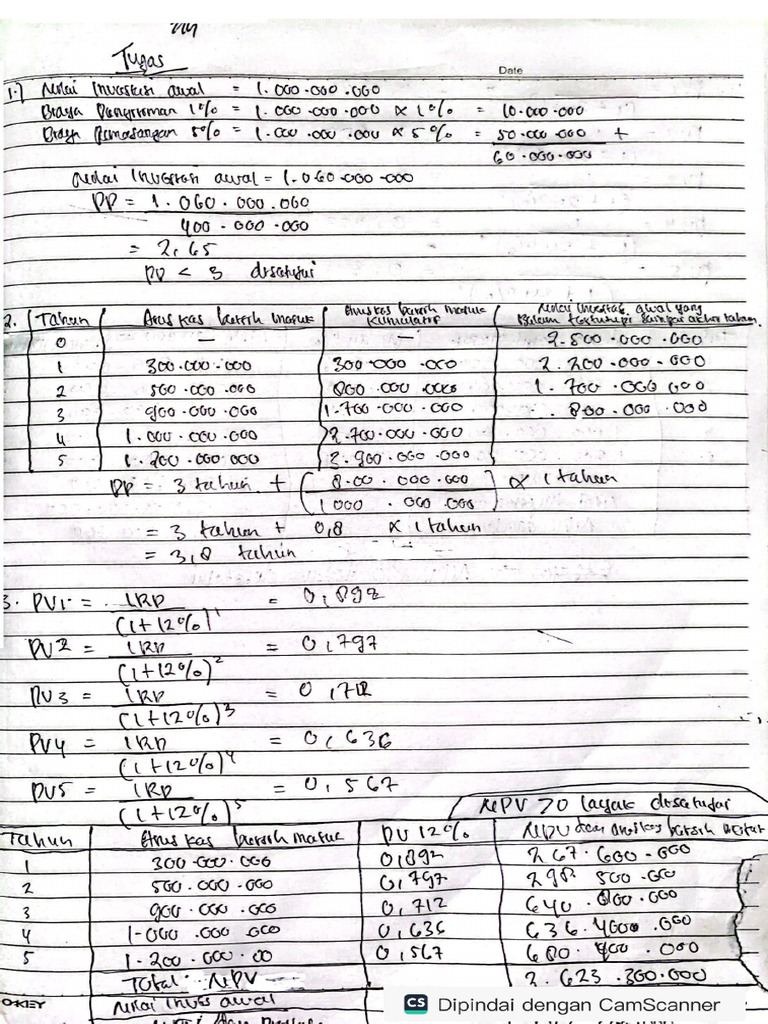 Tugas
Date
1.) Nilai Investasi awal = 1.000.000.000
Biaya Pengiriman 1% = 1.000.000.000 x 1% = 10.000.000
Biaya Pemasangan 5% = 1.000.000.000 x 5% = 50.000.000 +
60.000.000
Nilai Investasi awal = 1.060.000.000
PP = 1.060.000.000
400.000.000
= 2,65
PP < 3 disetujui
2. Tahun Arus kas bersih masuk Arus kas bersih masuk kumulatif Nilai Investasi awal yang Belum tertutupi Sampai akhir tahun
0 — — 2.500.000.000
1 300.000.000 300.000.000 2.200.000.000
2 500.000.000 800.000.000 1.700.000.000
3 900.000.000 1.700.000.000 800.000.000
4 1.000.000.000 2.700.000.000
5 1.200.000.000 3.900.000.000
PP = 3 tahun + (800.000.000 x 1 tahun
1000.000.000)
= 3 tahun + 0,8 x 1 tahun
= 3,8 tahun
3. PV1 = 1RP = 0,892
(1+12%)1
PV2 = 1RP = 0,797
(1+12%)2
PV3 = 1RP = 0,712
(1+12%)3
PV4 = 1RP = 0,636
(1+12%)4
PV5 = 1RP = 0,567
(1+12%)5
NPV > 0 layak disetujui
Tahun Arus kas bersih masuk PV 12% NPV dari arus kas bersih
1 300.000.000 0,892 267.600.000
2 500.000.000 0,797 298.500.000
3 900.000.000 0,712 640.800.000
4 1.000.000.000 0,636 636.4000.000
5 1.200.000.00 0,567 680.400.000
Total NPV 2.623.300.000
OKEY
Nilai Inves awal
CS Dipindai dengan CamScanner